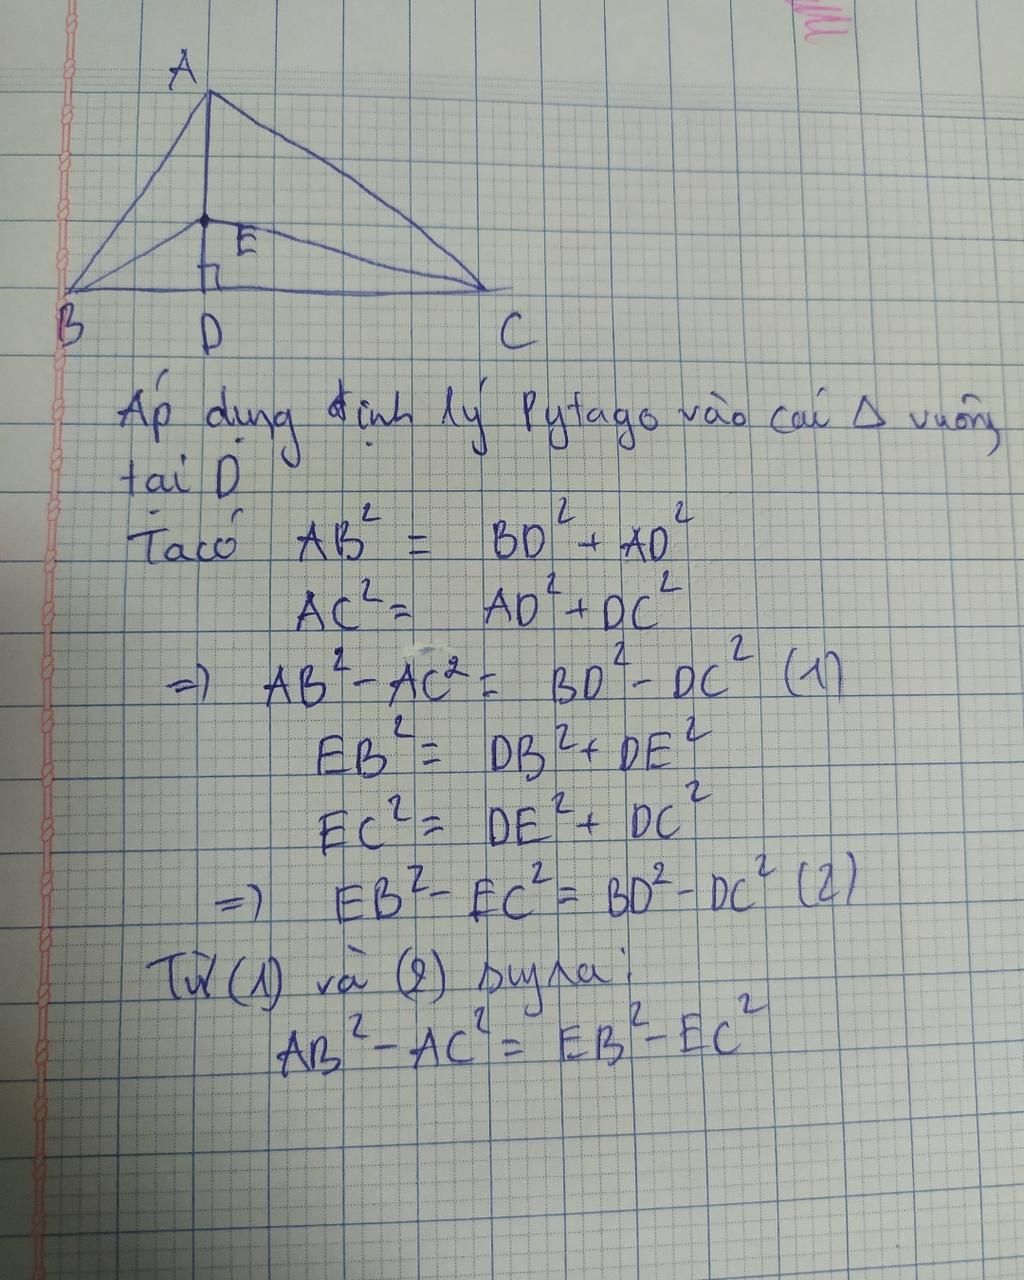 A
E
B D C
Áp dụng định lý Pytago vào các Δ vuông
tại D
Ta có AB² = BD² + AD²
AC² = AD² + DC²
=) AB² - AC² = BD² - DC² (1)
EB² = DB² + DE²
EC² = DE² + DC²
=) EB² - EC² = BD² - DC² (2)
Từ (1) và (2) suy ra:
AB² - AC² = EB² - EC²